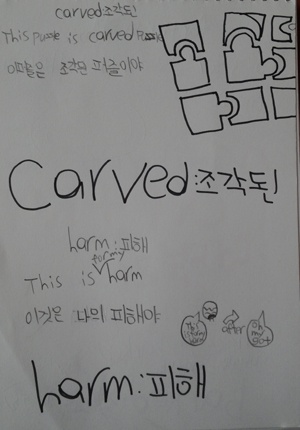 carved조각된
This Puzzle is carved Puzzle
이퍼즐은 조각된 퍼즐이야
Carved:조각된!
harm:피해
for my
This is harm
이것은 나의 피해야
after
oh my
harm:피해